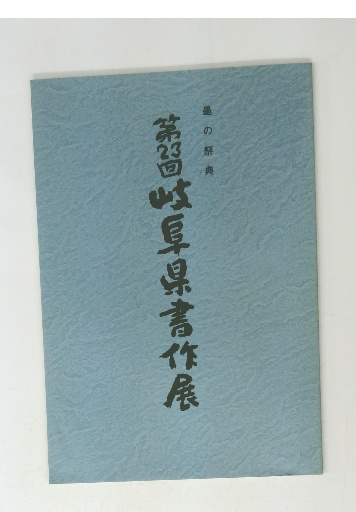 墨の祭典
第23回岐阜県書作展